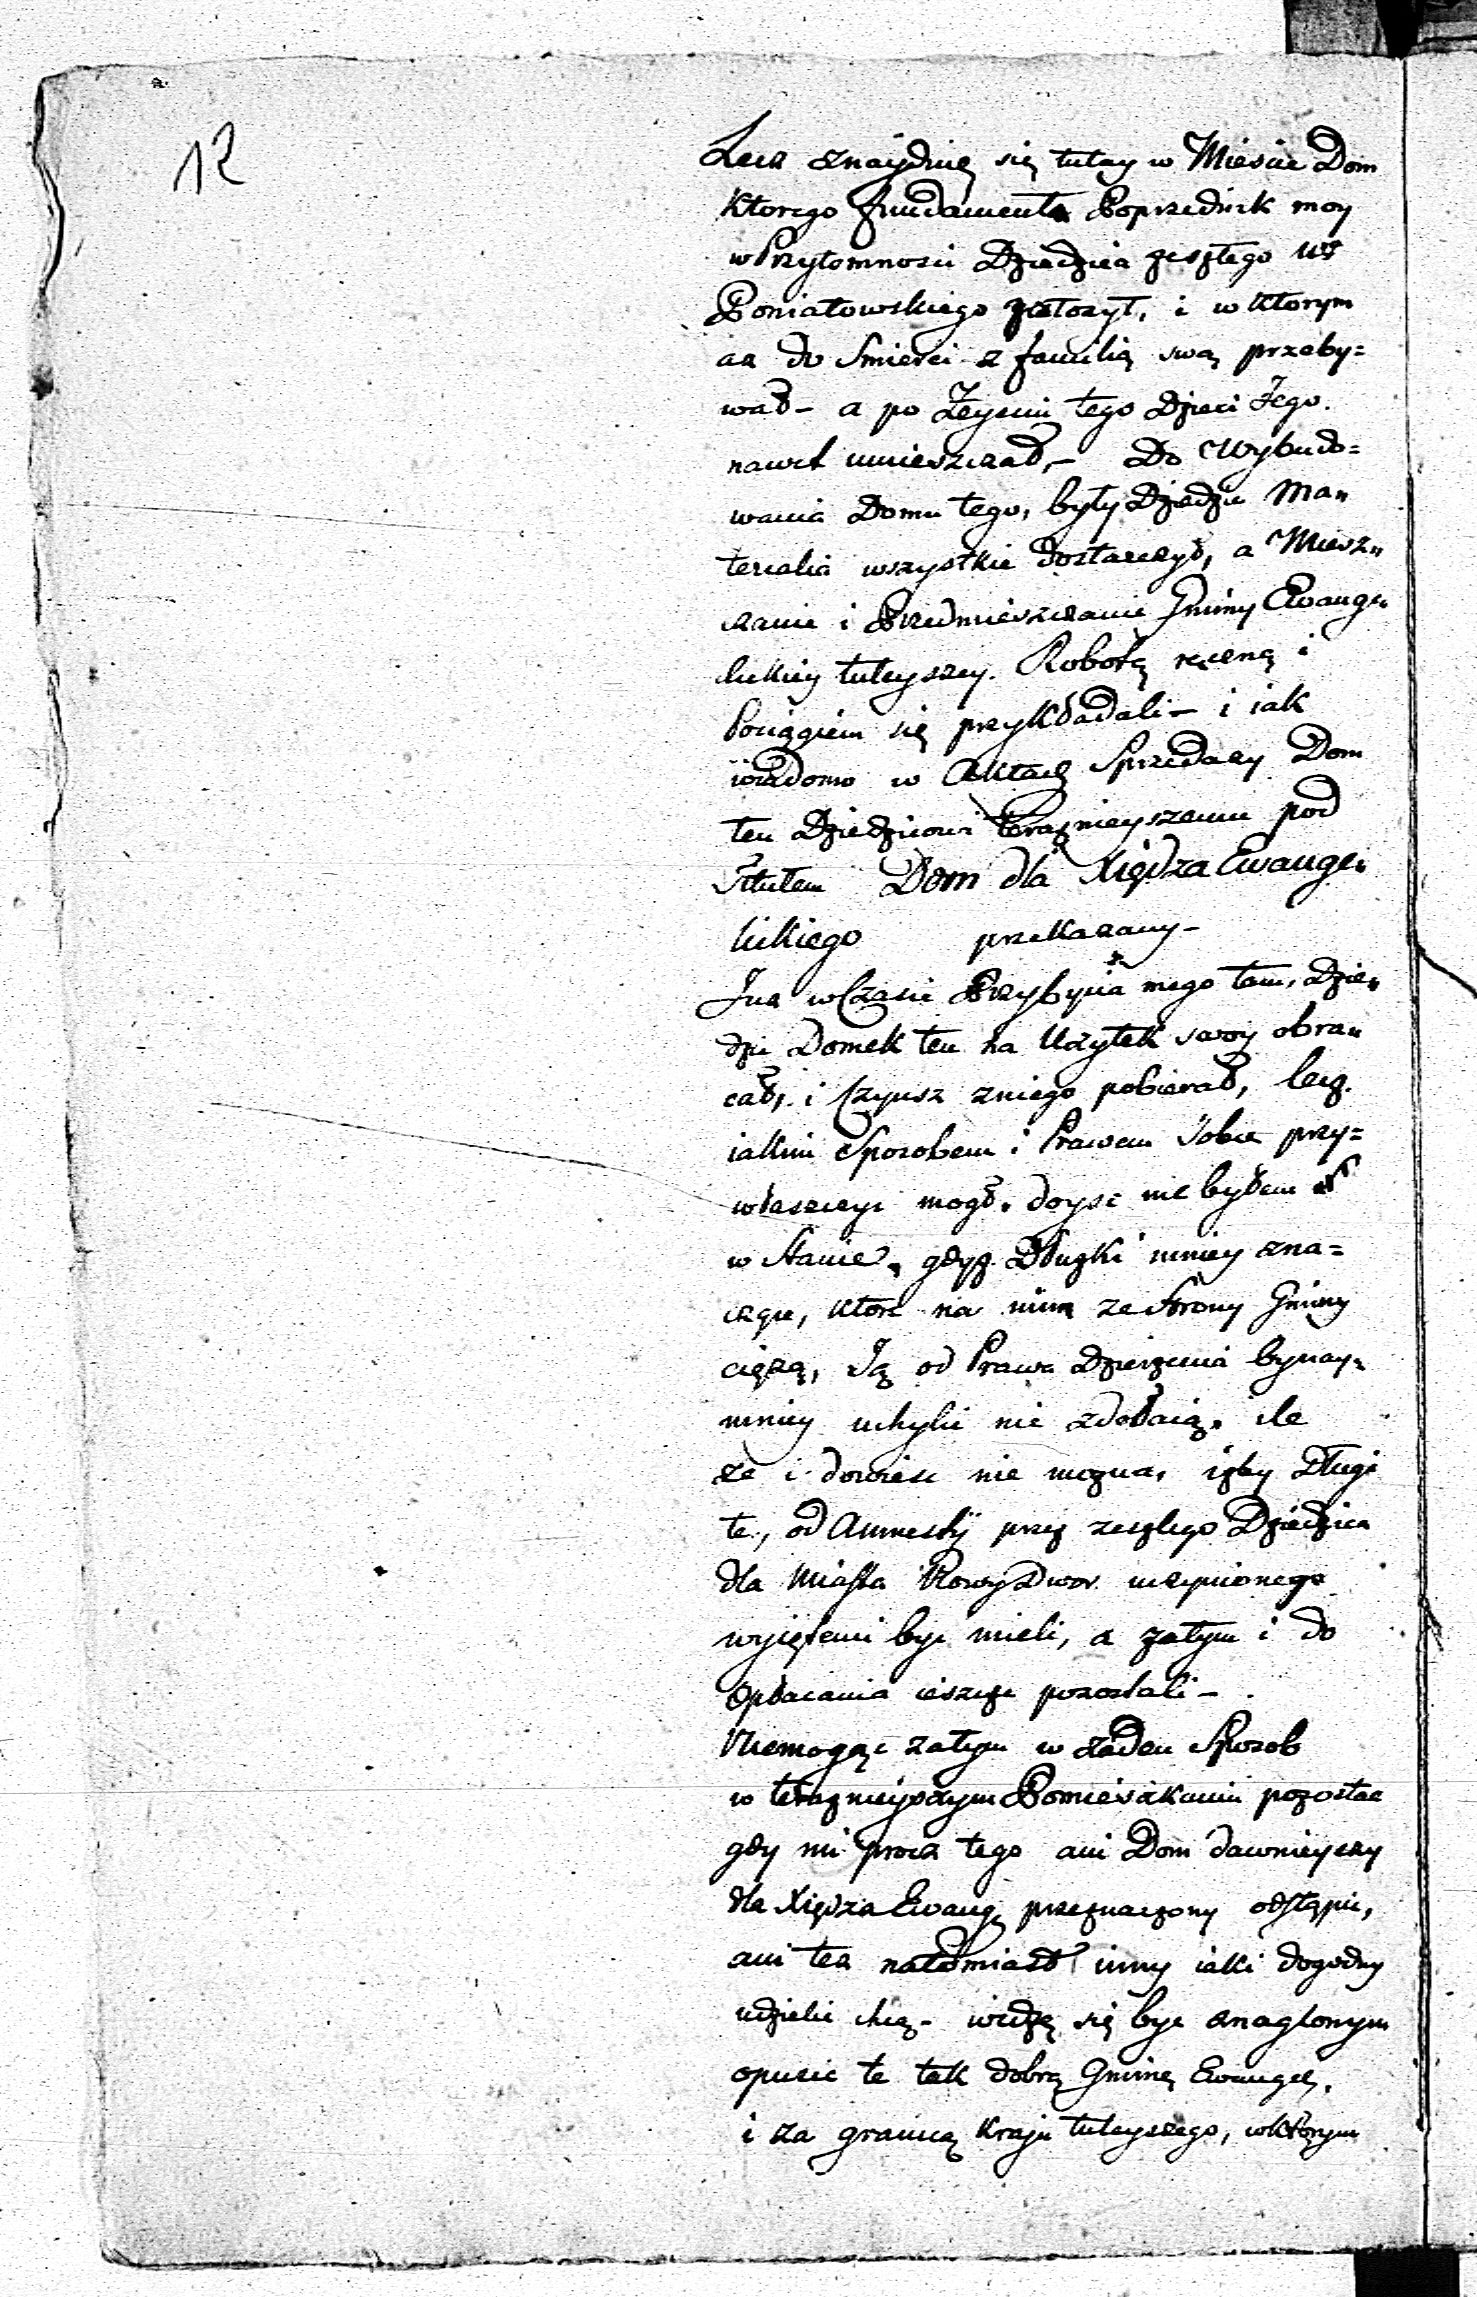 12
Lecz znayduię się tutay w Mieście Dom
ktorego fundamenta Poprzednik moy
w Przytomnosci Dziedzica zeszłego
Poniatowskiego założył, i w ktorym
az do Smierci z familią swą przeby=
wał – a po Zeyściu tego Dzieci Jego
nawet umieszczał, – Do Wybudo=
wania Domu tego, były Dziedzic Ma„
terialia wszystkie dostarczył, a Miesz„
czanie i Przedmieszczanie Gminy Ewange„
lickiey tuteyszey. Robotą ręczną i
Pociągiem się przykładali – i iak
wiadomo w Aktach Sprzedazy Dom
ten Dziedzicowi teraznieyszemu pod
tytułem Dom dla Xiędza Ewange„
lickiego przekazany –
Juz w Czasie Przybycia mego tam, Dzie„
dzic Domek ten na Uzytek swoy obra„
cał, i Czynsz z niego pobierał, lecz
iakim Sposobem i Prawem Sobie przy=
właszczyc mogł, doysc nie byłem
w Stanie, gdyz Dłuzki mniey zna=
czące, ktore na nim ze Strony Gminy
cięzą, Ją od Prawa Dzierzenia bynay„
mniey uchylic nie zdołaią, ile
ze i dowiesc nie mozna, izby Długi
te, od Amnestÿ przez zeszłego Dziedzica
dla Miasta Nowy Dwor uczynionego
wyiętemi byc mieli, a zatym i do
Opłacania ieszcze pozostali –
Niemogąc zatym w zaden Sposob
w teraznieyszym Pomieszkaniu pozostac
gdy mi procz tego ani Dom dawnieyszy
dla Xiędza Ewang. przeznaczony odstąpic,
ani tez natomiast inny iaki dogodny
udzielic chcą – widzę się byc znaglonym
opuscic te tak dobrą Gminę Ewangel.
i za granicą Kraju tuteyszego, w ktorym